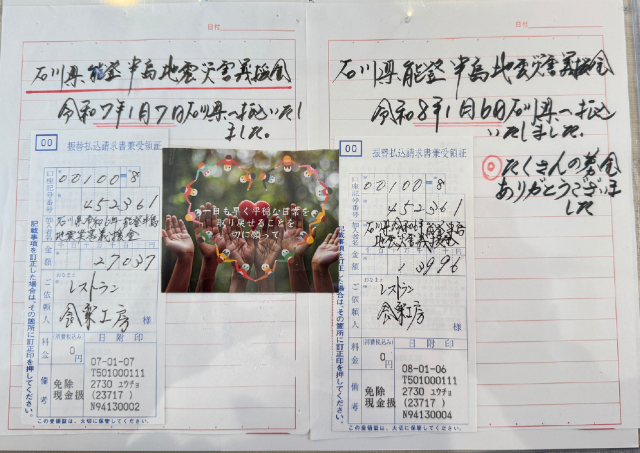 日付
石川県能登半島地震災害義援金
令和7年1月7日石川県へ振込いたし
ました。
00
振替払込請求書兼受領証
口座記号番号
00100=8
452361
加入者名
石川県令和6年能登半島
地震災害義援金
金額
27037
おなまえ
ご依頼人
レストラン
様
料金
消費税込み
0円
日附印
07-01-07
T501000111
2730 ユウチョ
(23717 )
N94130002
備考
免除
現金扱
記載事項を訂正した場合は、その箇所に訂正印を押してください。
この受領証は、大切に保管してください。
一日も早く平穏な日常を
取り戻せることを
切に願って
日付
石川県能登半島地震災害義援金
令和8年1月6日石川県へ振込
いたしました。
◎たくさんの募金
ありがとうございま
した
00
振替払込請求書兼受領証
口座記号番号
00100=8
452361
加入者名
石川県令和6年能登半島
地震災害義援金
金額
13996
おなまえ
ご依頼人
レストラン
様
料金
消費税込み
0円
日附印
08-01-06
T501000111
2730 ユウチョ
(23717 )
N94130004
備考
免除
現金扱
記載事項を訂正した場合は、その箇所に訂正印を押してください。
この受領証は、大切に保管してください。